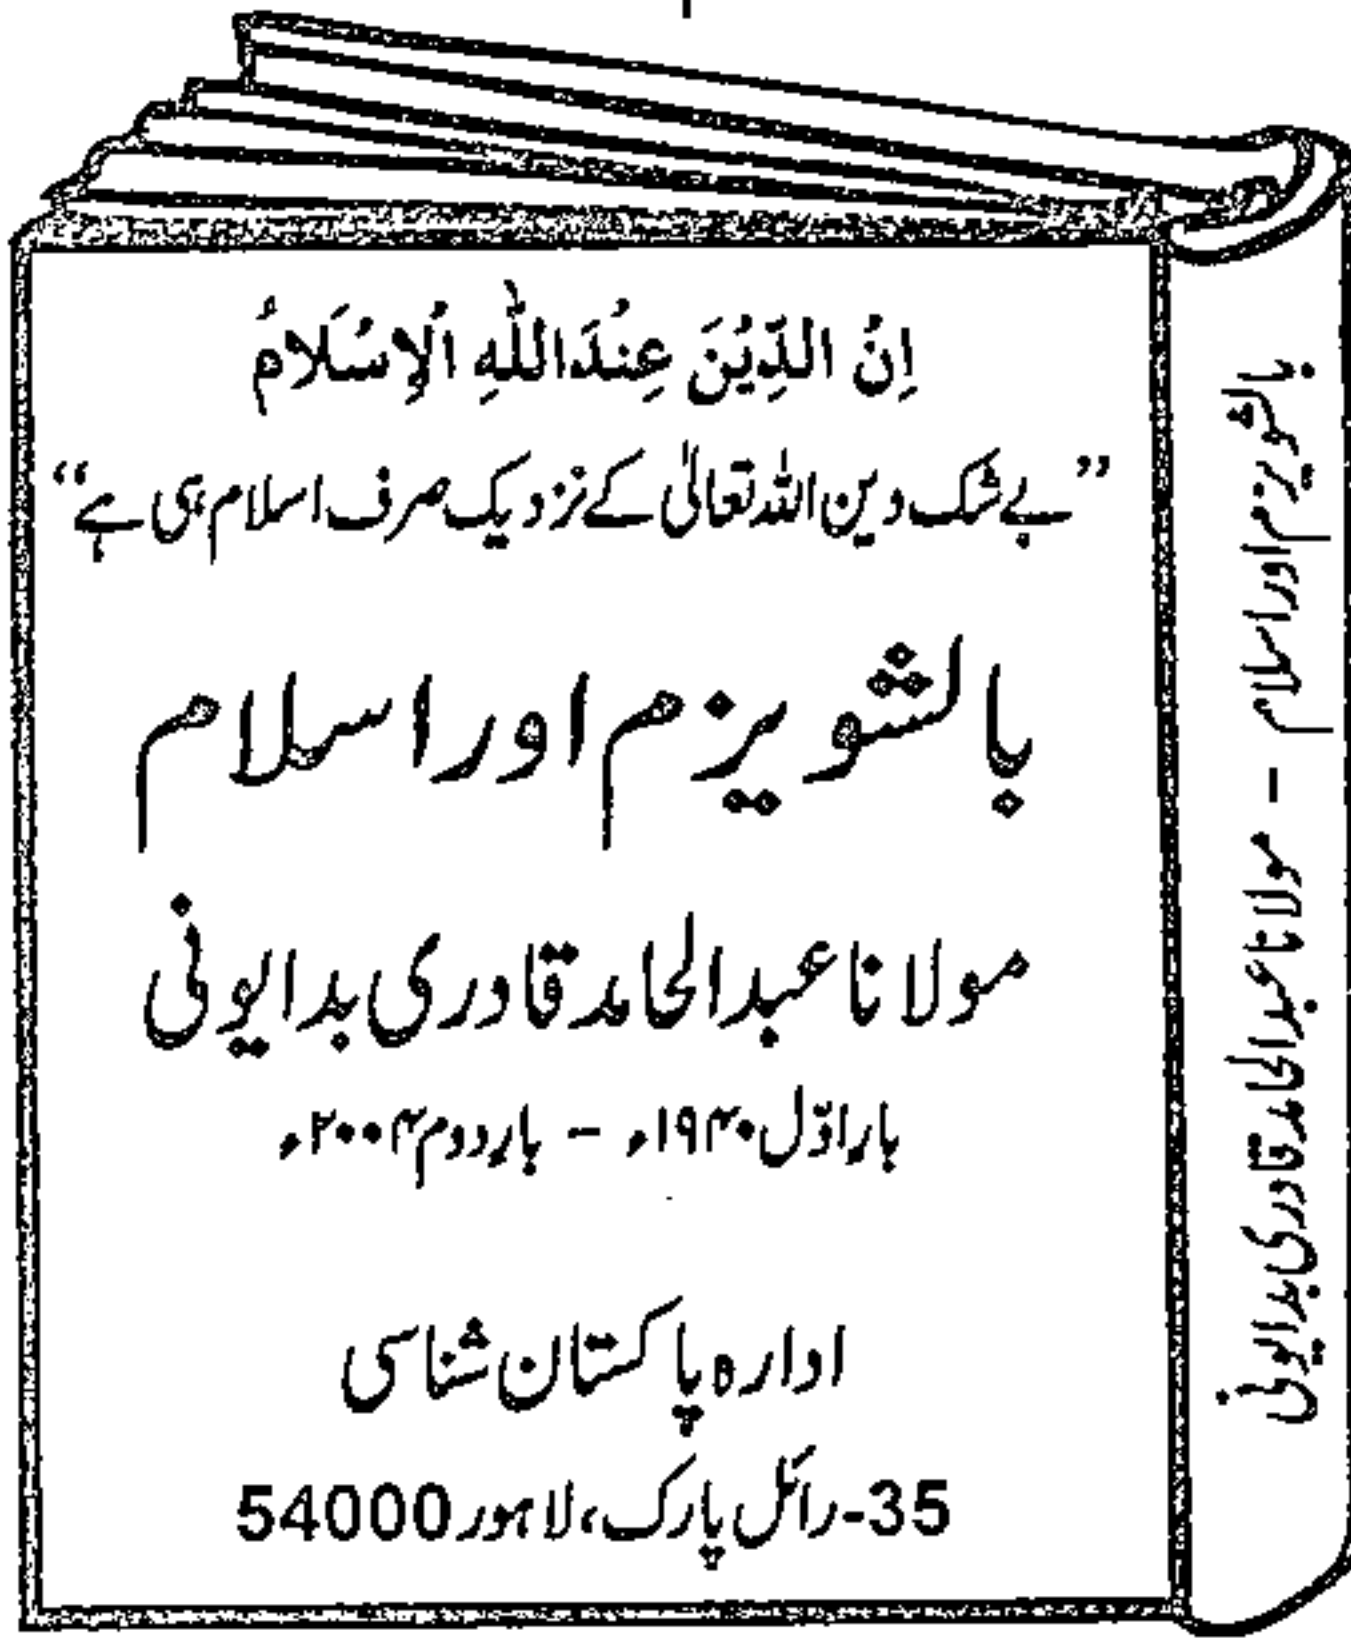 اِنَّ الدِّيْنَ عِنْدَاللّٰهِ الْاِسْلَامُ
”بے شک دین اللہ تعالیٰ کے نزدیک صرف اسلام ہی ہے“
بالشویزم اور اسلام
مولانا عبدالحامد قادری بدایونی
بارِ اوّل ۱۹۴۰ء - بارِ دوم ۲۰۰۴ء
ادارہ پاکستان شناسی
35-رائل پارک، لاہور 54000
بالشویزم اور اسلام - مولانا عبدالحامد قادری بدایونی